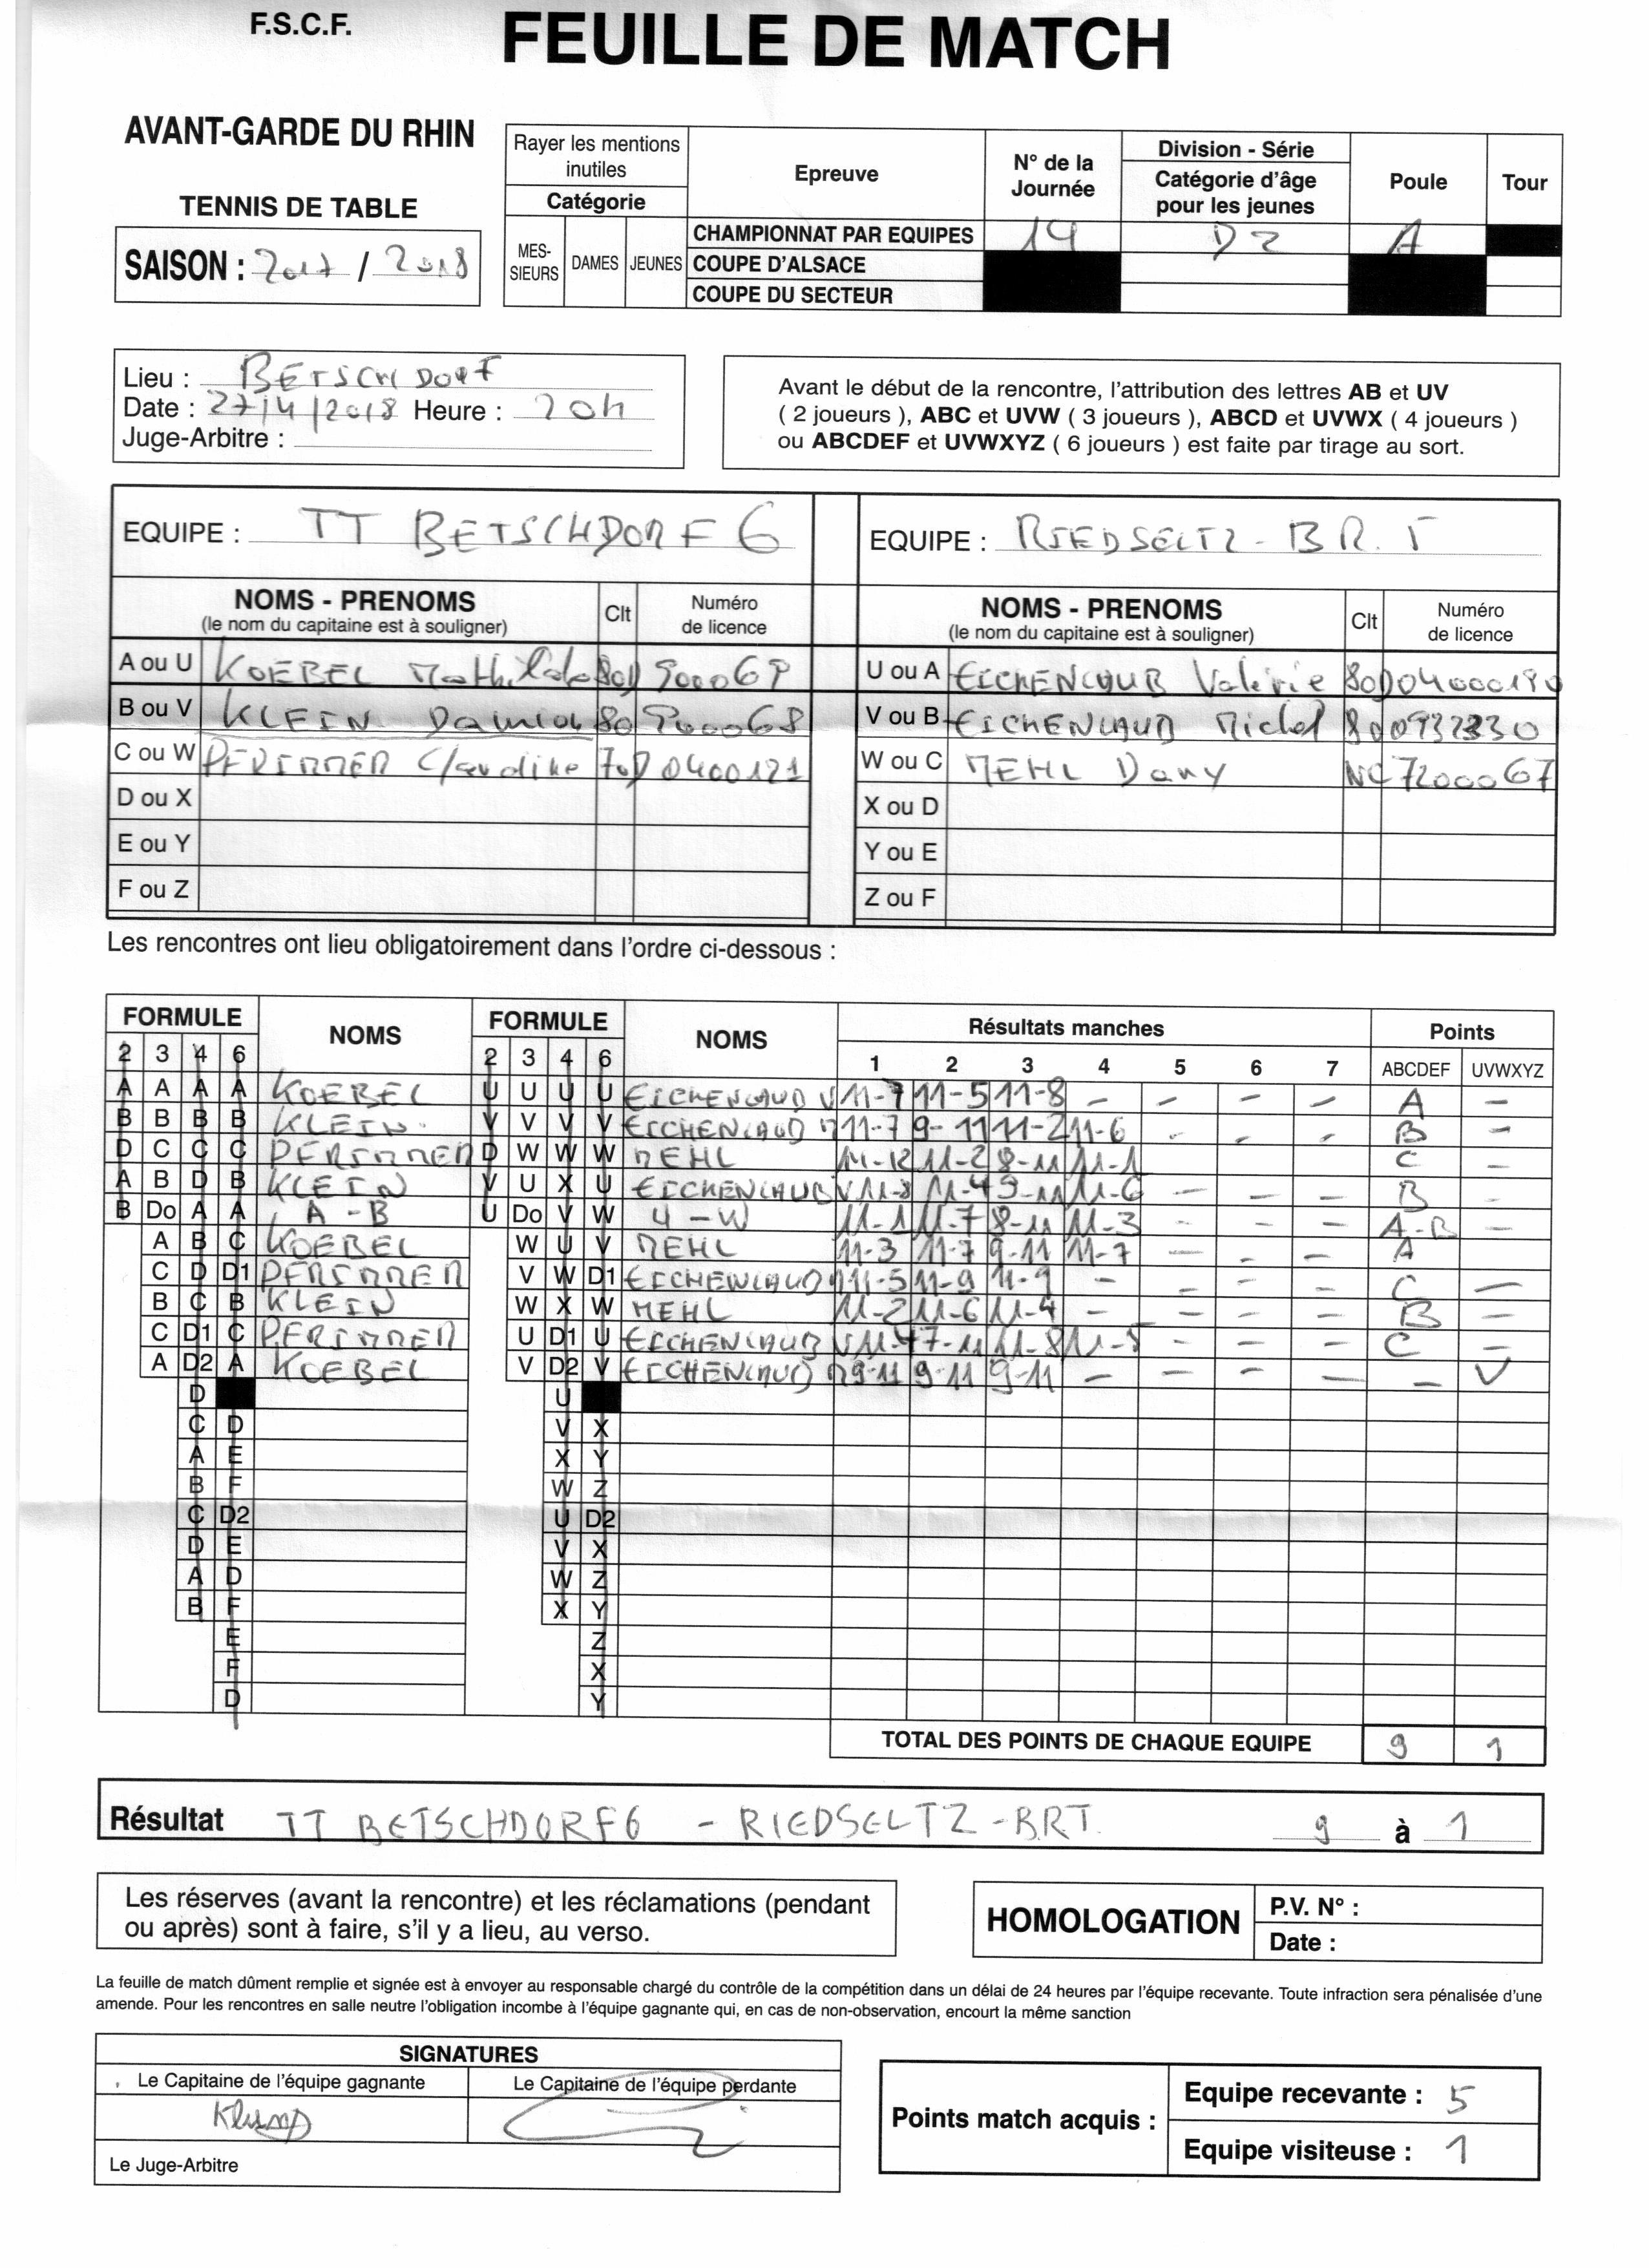 F.S.C.F.
FEUILLE DE MATCH
AVANT-GARDE DU RHIN
TENNIS DE TABLE
SAISON : 2017 / 2018
Rayer les mentions inutiles
Catégorie
MES-SIEURS DAMES JEUNES
Epreuve
N° de la Journée
Division - Série
Catégorie d'âge pour les jeunes
Poule
Tour
CHAMPIONNAT PAR EQUIPES 14 D2 A
COUPE D'ALSACE
COUPE DU SECTEUR
Lieu : BETSCHDORF
Date : 27/4/2018 Heure : 20h
Juge-Arbitre :
Avant le début de la rencontre, l'attribution des lettres AB et UV
( 2 joueurs ), ABC et UVW ( 3 joueurs ), ABCD et UVWX ( 4 joueurs )
ou ABCDEF et UVWXYZ ( 6 joueurs ) est faite par tirage au sort.
EQUIPE : TT BETSCHDORF 6
EQUIPE : RIEDSELTZ-B R. T
NOMS - PRENOMS Clt Numéro de licence
(le nom du capitaine est à souligner)
NOMS - PRENOMS Clt Numéro de licence
(le nom du capitaine est à souligner)
A ou U KOEBEL Mathilde 80D
U ou A EICHENLAUB Valérie 80D 04000190
B ou V KLEIN 80 900068
V ou B EICHENLAUB Michel 80
C ou W PFRIMMER Claudine 70D 0400121
W ou C MEHL Dany NC 7200067
D ou X
X ou D
E ou Y
Y ou E
F ou Z
Z ou F
Les rencontres ont lieu obligatoirement dans l'ordre ci-dessous :
FORMULE NOMS FORMULE NOMS Résultats manches Points
2 3 4 6 2 3 4 6 1 2 3 4 5 6 7 ABCDEF UVWXYZ
A A A A KOEBEL U U U U EICHENLAUB V 11-7 11-5 11-8 - - - - A -
B B B B KLEIN V V V V EICHENLAUB M 11-7 9-11 11-2 11-6 - - - B -
D C C C PFRIMMER D W W W MEHL 11-2 8-11 11-1 C -
A B D B KLEIN V U X U EICHENLAUB V 11-8 11-4 9-11 11-6 - - - B -
B Do A A A-B U Do V W U-W 11-1 11-7 8-11 11-3 - - - A-B -
A B C KOEBEL W U V MEHL 11-3 11-7 9-11 11-7 - - - A -
C D D1 PFRIMMER V W D1 EICHENLAUB M 11-5 11-9 11-9 - - - C -
B C B KLEIN W X W MEHL 11-2 11-6 11-4 - - - - B -
C D1 C PFRIMMER U D1 U EICHENLAUB V 11-4 7-11 11-8 11-5 - - - C -
A D2 A KOEBEL V D2 V EICHENLAUB M 9-11 9-11 9-11 - - - - - V
D U
C D V X
A E X Y
B F W Z
C D2 U D2
D E V X
A D W Z
B F X Y
E Z
F X
D Y
TOTAL DES POINTS DE CHAQUE EQUIPE 9 1
Résultat TT BETSCHDORF6 - RIEDSELTZ-B.R.T. 9 à 1
Les réserves (avant la rencontre) et les réclamations (pendant
ou après) sont à faire, s'il y a lieu, au verso.
HOMOLOGATION
P.V. N° :
Date :
La feuille de match dûment remplie et signée est à envoyer au responsable chargé du contrôle de la compétition dans un délai de 24 heures par l'équipe recevante. Toute infraction sera pénalisée d'une
amende. Pour les rencontres en salle neutre l'obligation incombe à l'équipe gagnante qui, en cas de non-observation, encourt la même sanction
SIGNATURES
Le Capitaine de l'équipe gagnante
Le Capitaine de l'équipe perdante
Le Juge-Arbitre
Points match acquis :
Equipe recevante : 5
Equipe visiteuse : 1